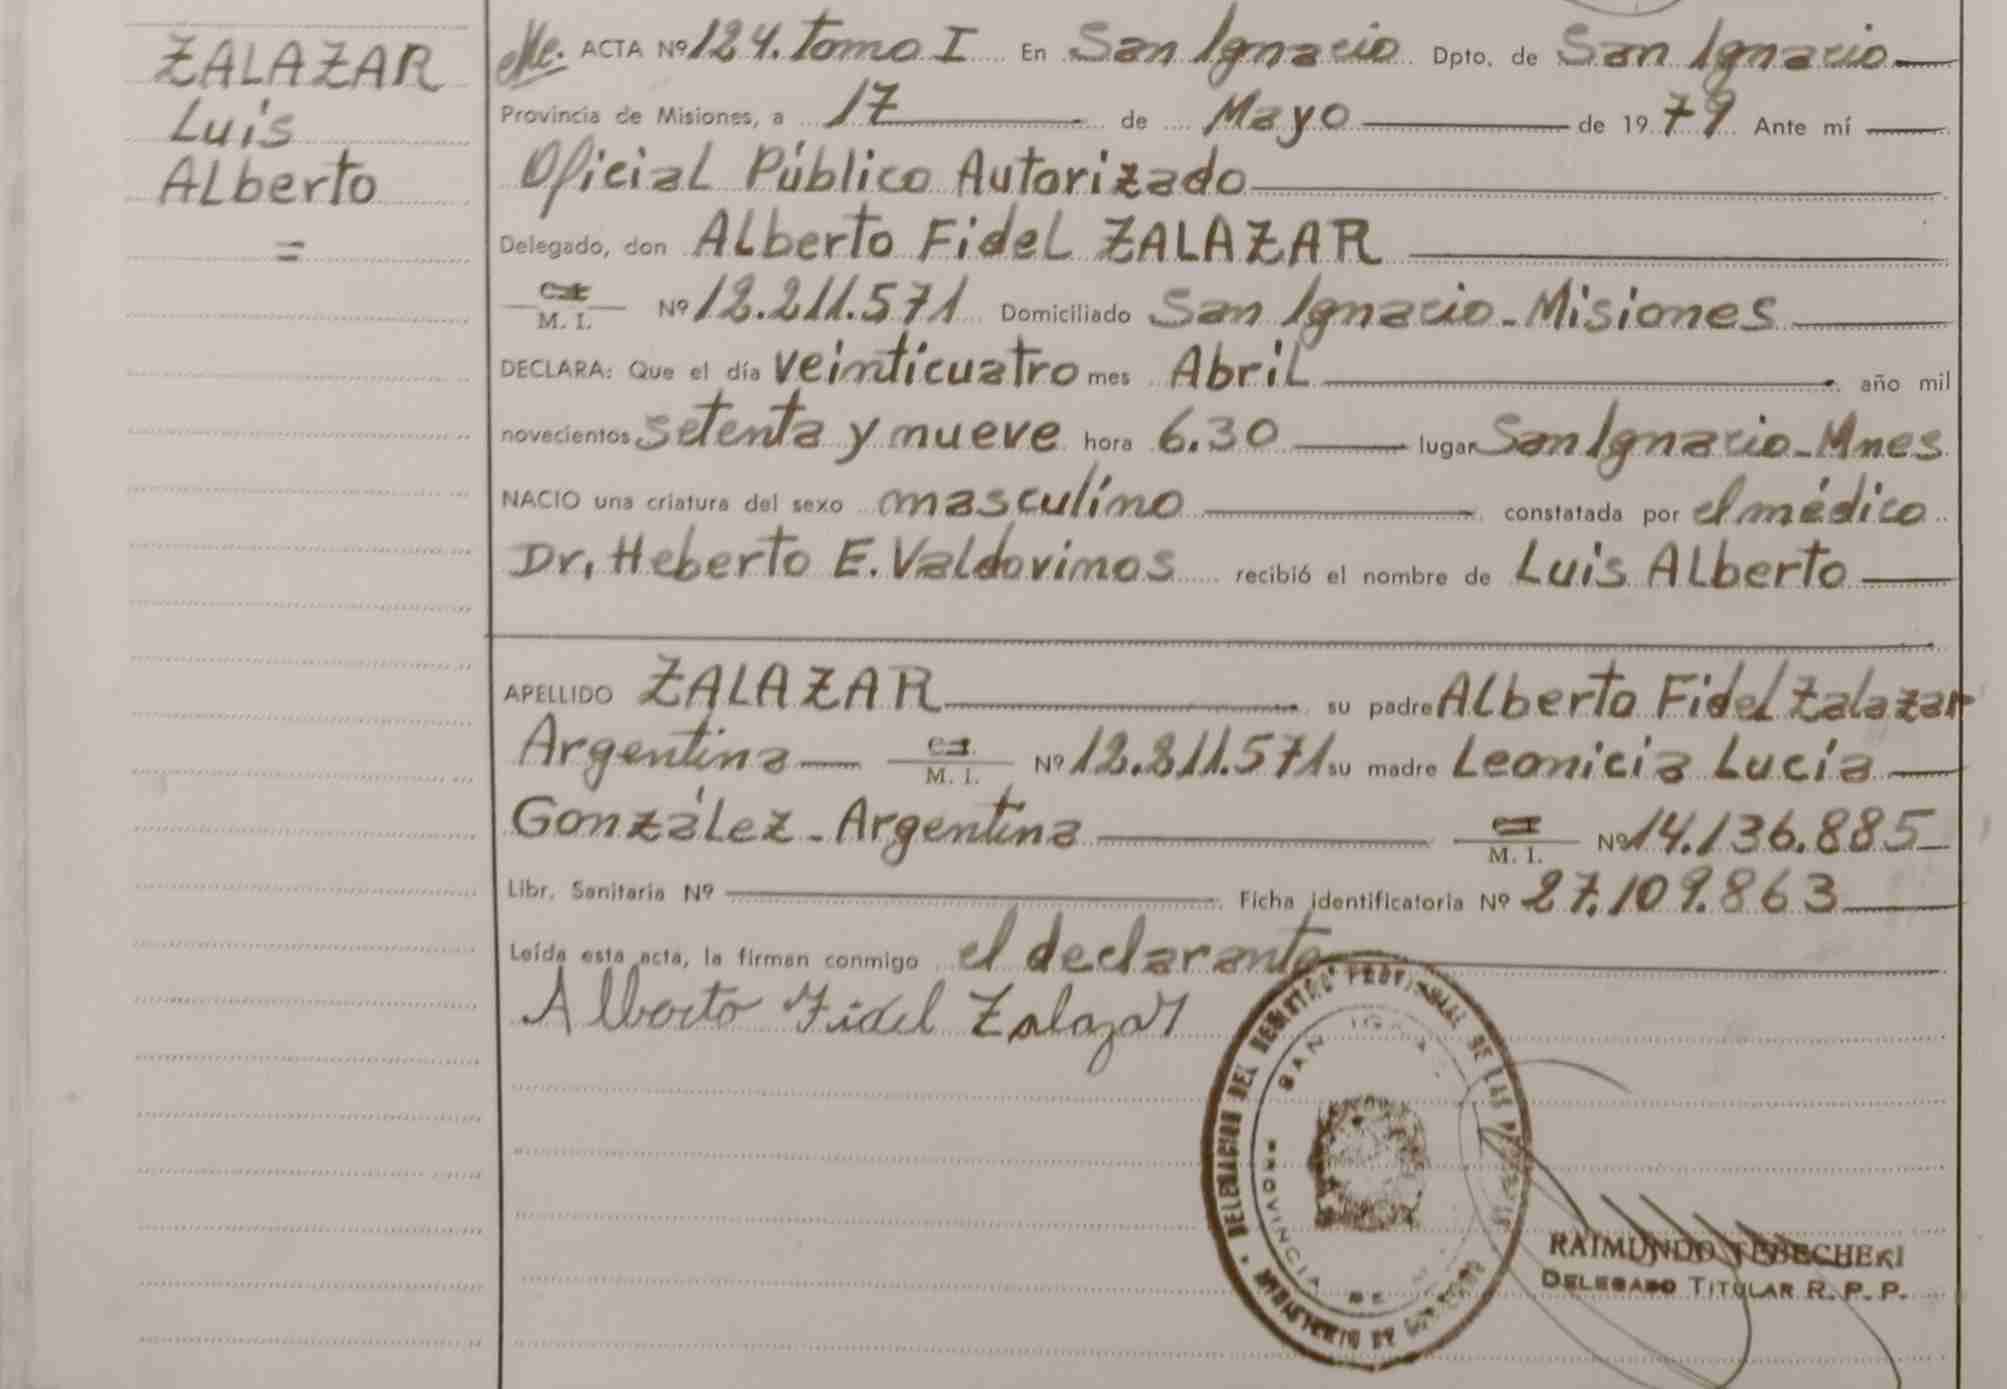 ZALAZAR
Luis
Alberto
=
ACTA Nº 124. Tomo I En San Ignacio Dpto. de San Ignacio
Provincia de Misiones, a 17 de Mayo de 1979 Ante mí
Oficial Público Autorizado
Delegado, don Alberto Fidel ZALAZAR
M. I. Nº 12.211.571 Domiciliado San Ignacio - Misiones
DECLARA: Que el día veinticuatro mes Abril año mil
novecientos setenta y nueve hora 6.30 lugar San Ignacio - Mnes
NACIO una criatura del sexo masculino constatada por el médico
Dr. Heberto E. Valdovinos recibió el nombre de Luis Alberto
APELLIDO ZALAZAR su padre Alberto Fidel Zalazar
Argentina M. I. Nº 12.211.571 su madre Leonicia Lucía
González - Argentina M. I. Nº 14.136.885
Libr. Sanitaria Nº Ficha identificatoria Nº 27.109.863
Leída esta acta, la firman conmigo el declarante
Alberto Fidel Zalazar
DELEGACION DEL REGISTRO PROVINCIAL DE LAS
SAN IG
PROVINCIA DE
MINISTERIO DE GOBIERNO
RAIMUNDO
DELEGADO TITULAR R. P. P.